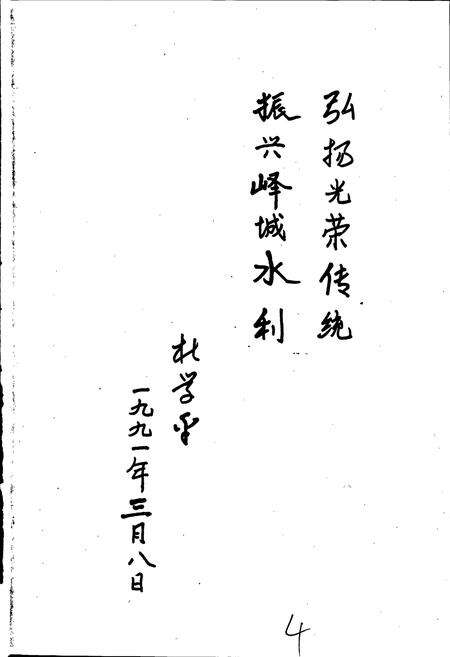 弘扬光荣传统
振兴峄城水利
杜学平
一九九一年三月八日
4